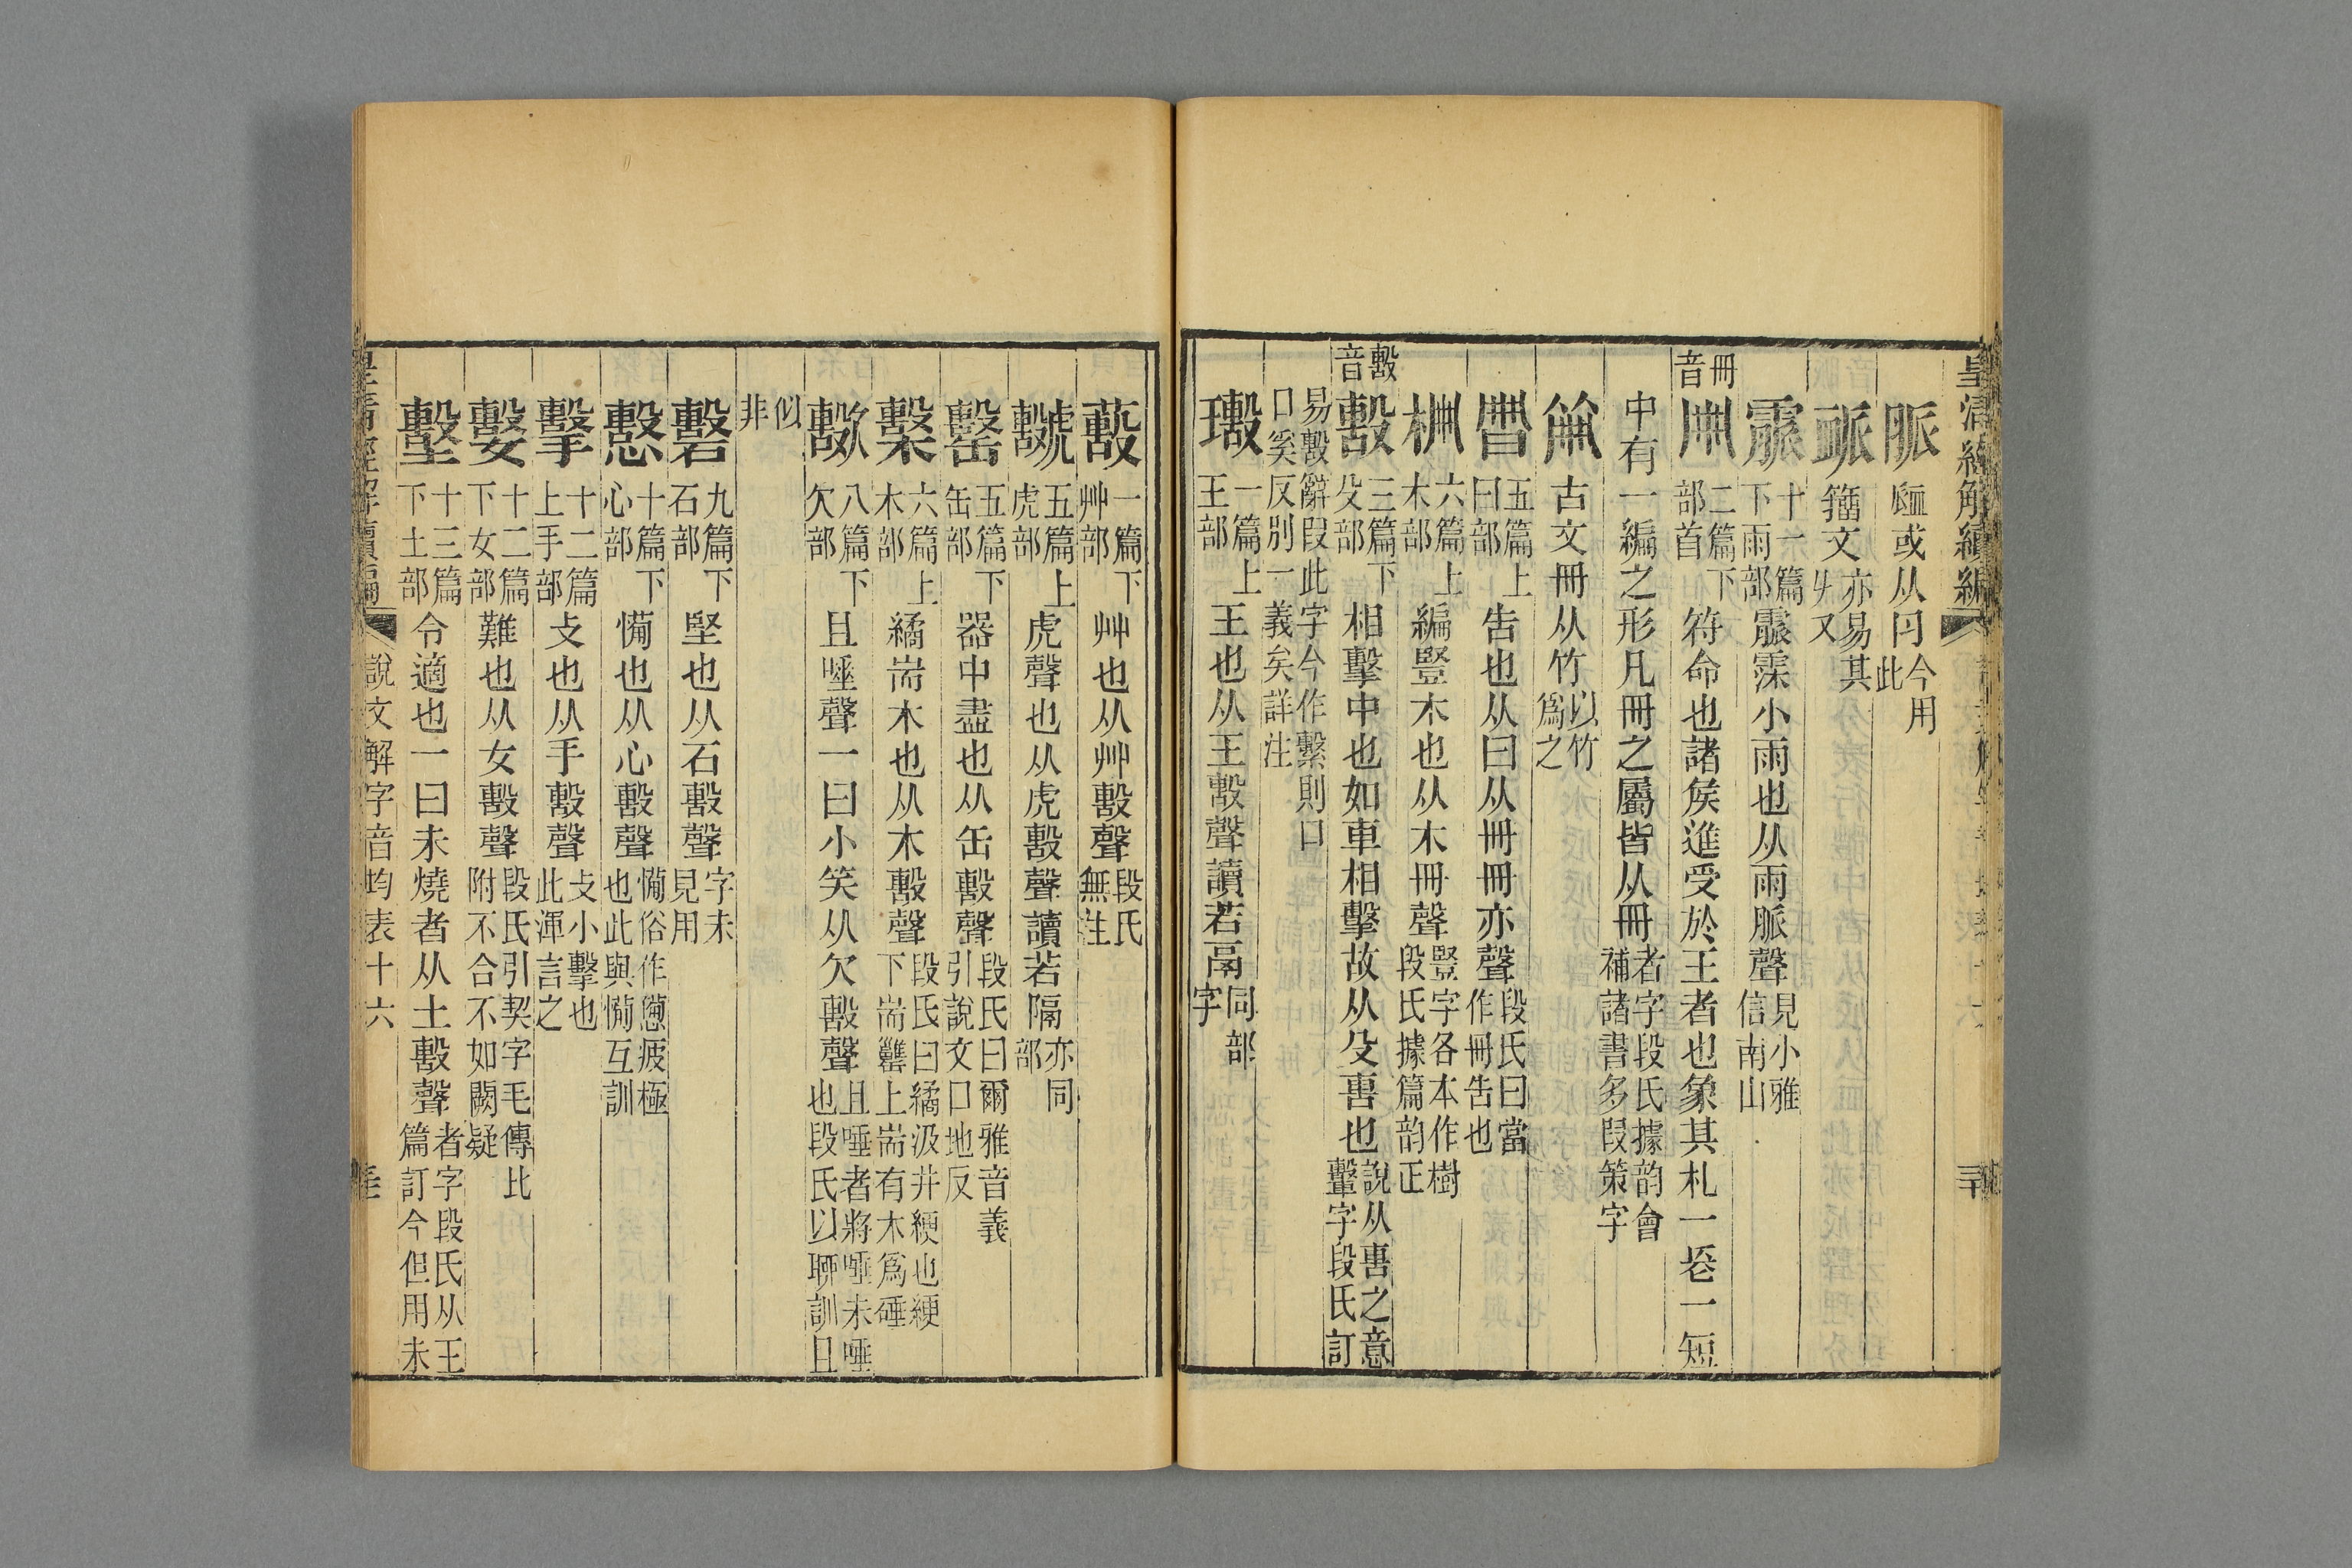 皇清經解續編
脈 𧖴或从⺼今用此
𧖴 籒文亦易其爿又
霢 十一篇下雨部 霢霂小雨也从雨脈聲見小雅信南山
冊音 冊 二篇下部首 符命也諸矦進受於王者也象其札一長一短
中有一編之形凡冊之屬皆从冊者字段氏據韵會補諸書多叚策字
笧 古文冊从竹以竹爲之
𠕋 五篇上曰部 告也从曰从冊冊亦聲段氏曰當作冊告也
柵 六篇上木部 編豎木也从木冊聲豎字各本作樹段氏據篇韵正
毄音 毄 三篇下殳部 相擊中也如車相擊故从殳叀也說从叀之意轚字段氏訂
易毄辭叚此字今作繫則口口奚反別一義矣詳注
㻶 一篇上王部 王也从王毄聲讀若鬲同部字
䕣 一篇下艸部 艸也从艸毄聲段氏無注
䖙 五篇上虎部 虎聲也从虎毄聲讀若隔亦同部
罊 五篇下缶部 器中盡也从缶毄聲段氏曰爾雅音義引說文口地反
檕 六篇上木部 繘耑木也从木毄聲段氏曰繘汲井綆也綆下耑䰜上耑有木爲硾
㱌 八篇下欠部 且唾聲一曰小笑从欠毄聲且唾者將唾未唾也段氏以聊訓且
似非
礊 九篇下石部 堅也从石毄聲字未見用
𢤆 十篇下心部 㥶也从心毄聲㥶俗作憊疲極也此與㥶互訓
擊 十二篇上手部 攴也从手毄聲攴小擊也此渾言之
嫛 十二篇下女部 難也从女毄聲段氏引契字毛傳比附不合不如闕疑
墼 十三篇下土部 令適也一曰未燒者从土毄聲者字段氏从王篇訂今但用未
皇清經解續編 說文解字音均表十六